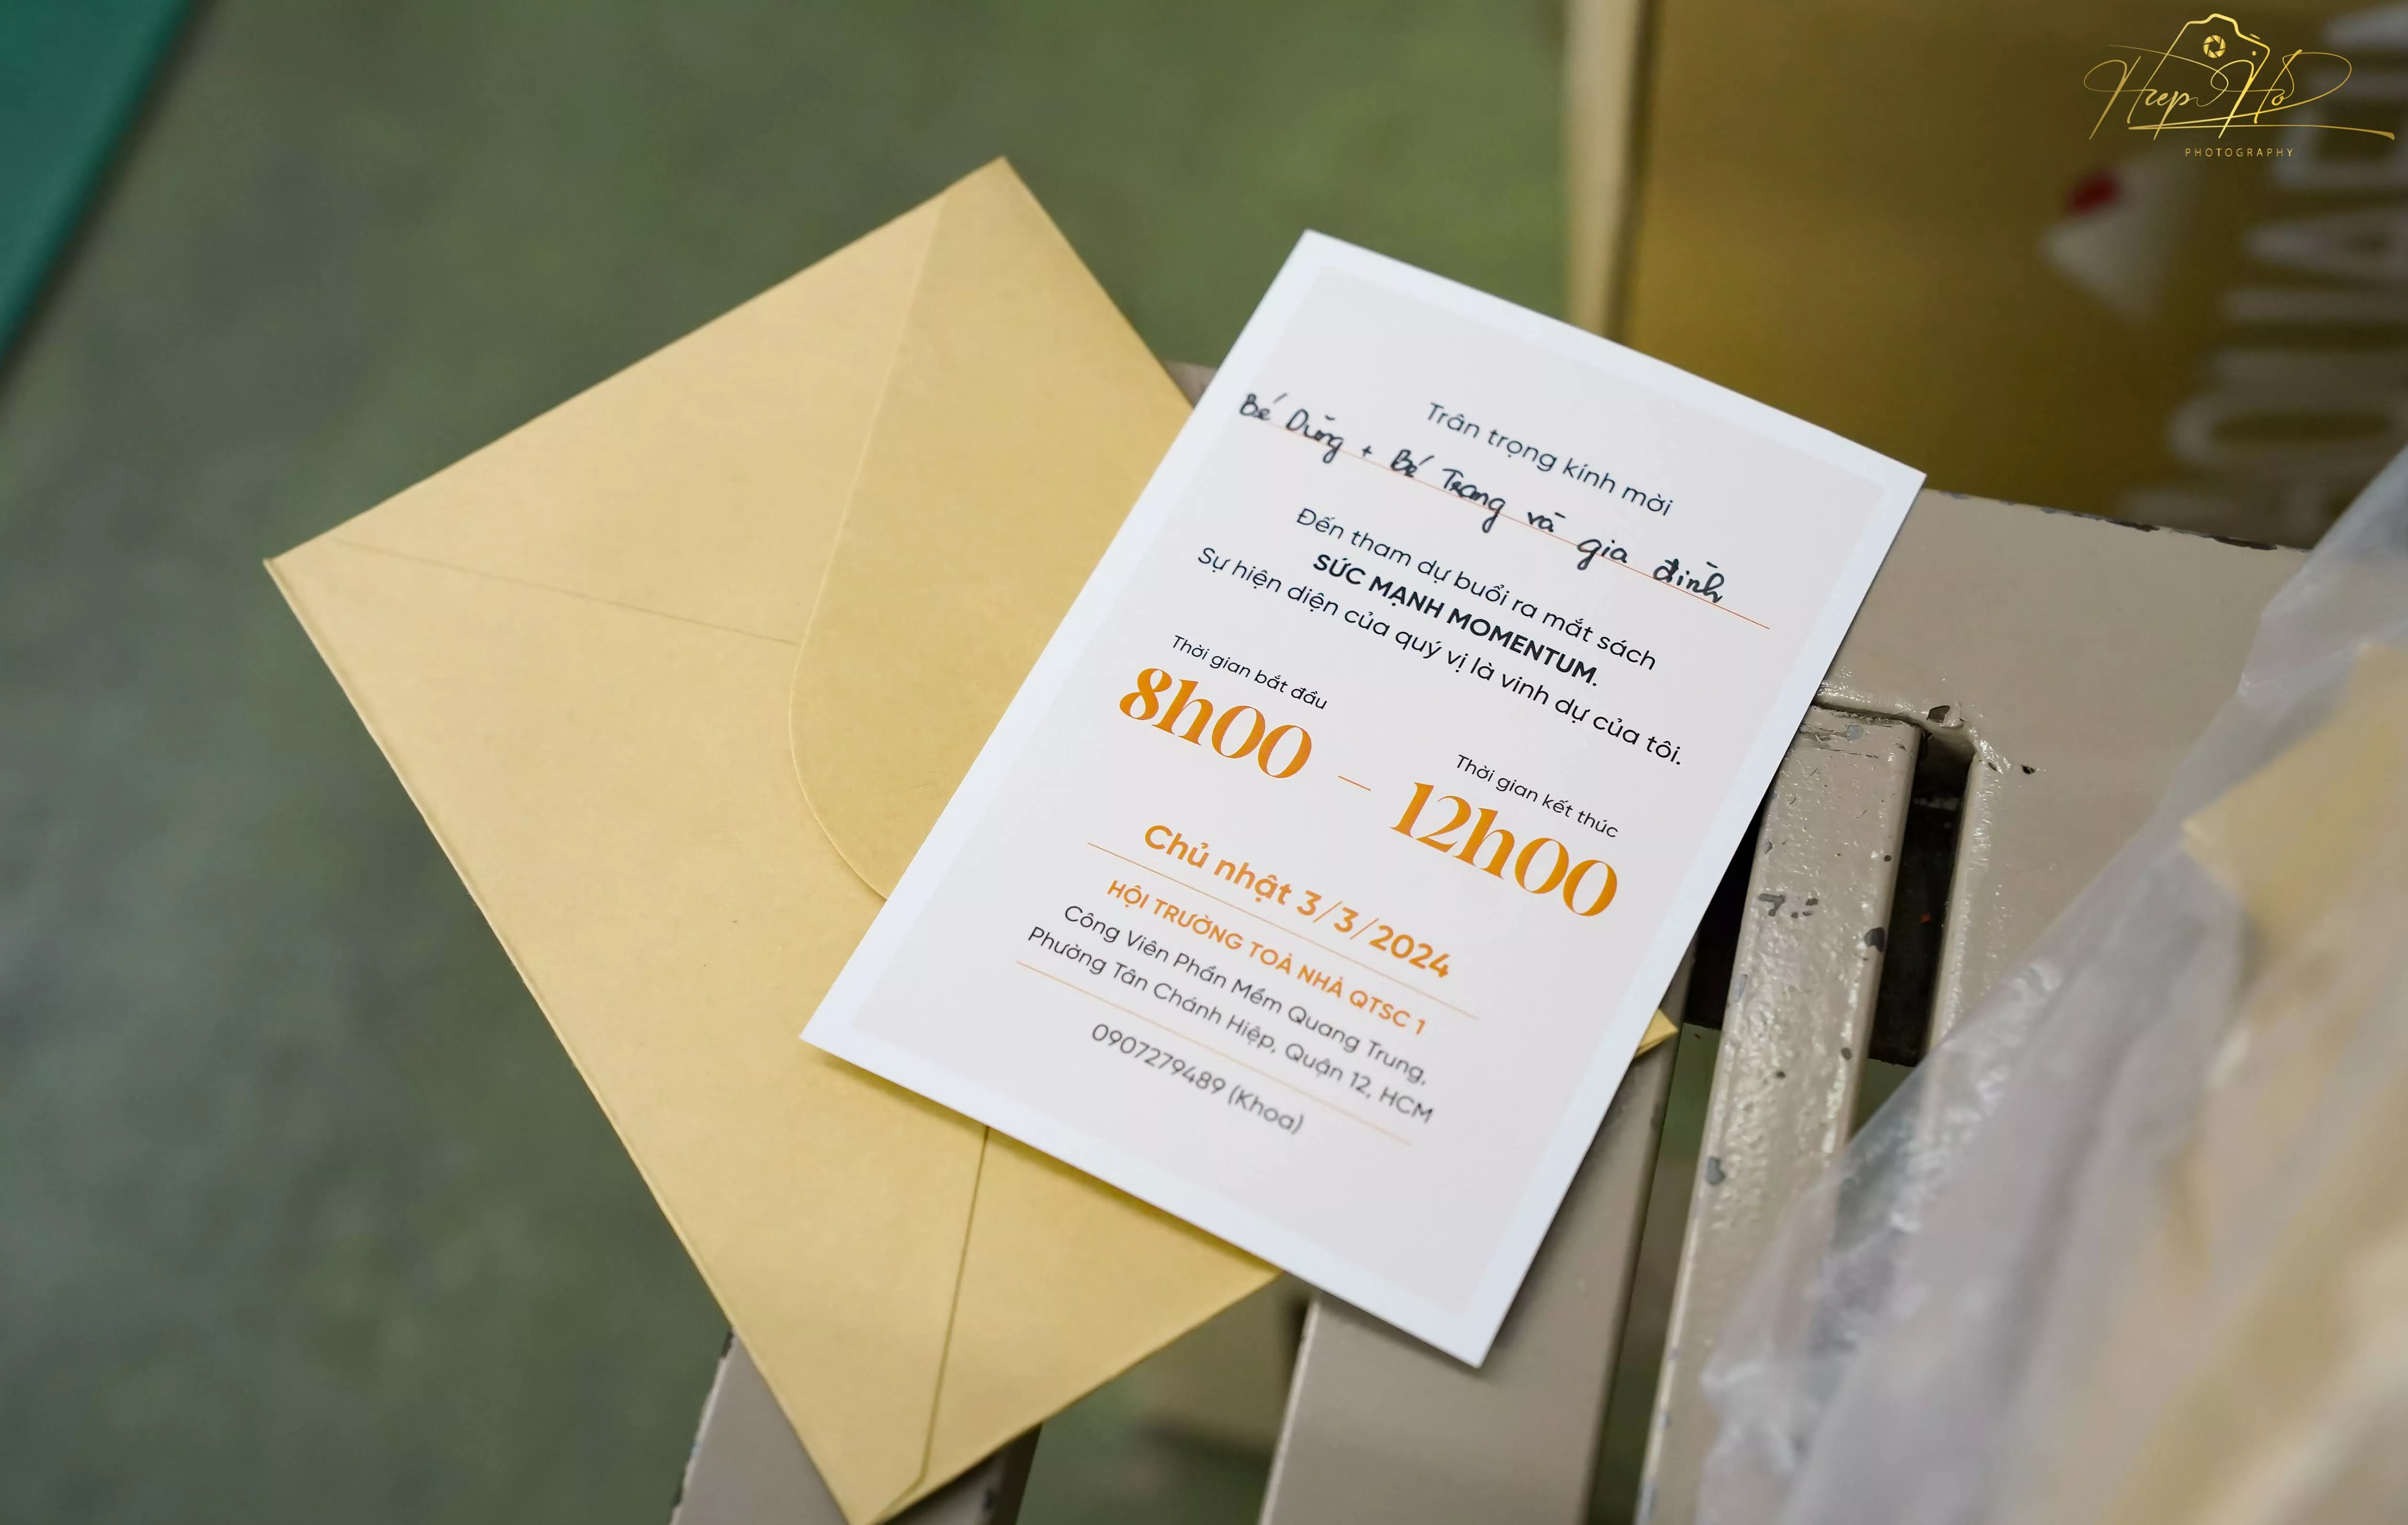 Hiep Ho
PHOTOGRAPHY
Trân trọng kính mời
Bé Dũng + Bé Trang và gia đình
Đến tham dự buổi ra mắt sách
SỨC MẠNH MOMENTUM.
Sự hiện diện của quý vị là vinh dự của tôi.
Thời gian bắt đầu
8h00
—
Thời gian kết thúc
12h00
Chủ nhật 3/3/2024
HỘI TRƯỜNG TOÀ NHÀ QTSC 1
Công Viên Phần Mềm Quang Trung,
Phường Tân Chánh Hiệp, Quận 12, HCM
0907279489 (Khoa)